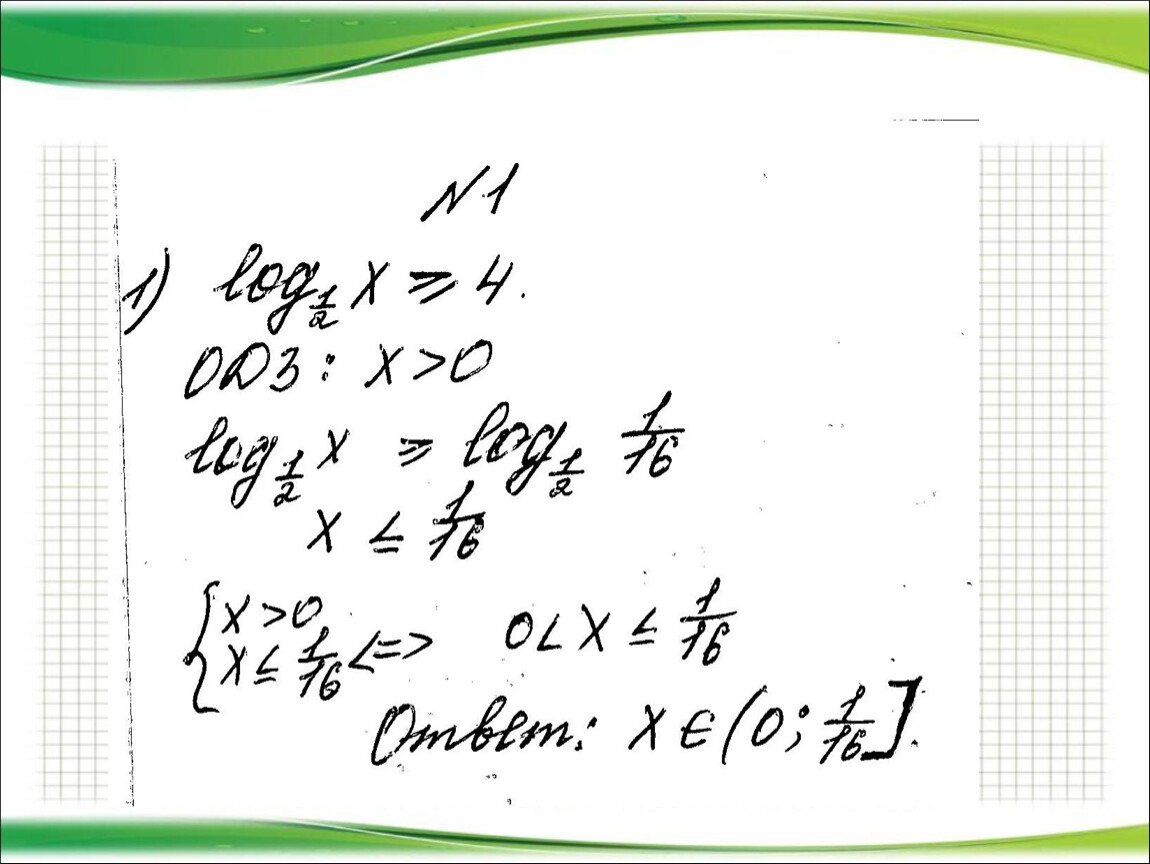 N1
1) log_{1/2} x ≥ 4.
ОДЗ: x>0
log_{1/2} x ≥ log_{1/2} 1/16
x ≤ 1/16
{x>0
x ≤ 1/16 <=> 0<x ≤ 1/16
Ответ: x ∈ (0; 1/16].